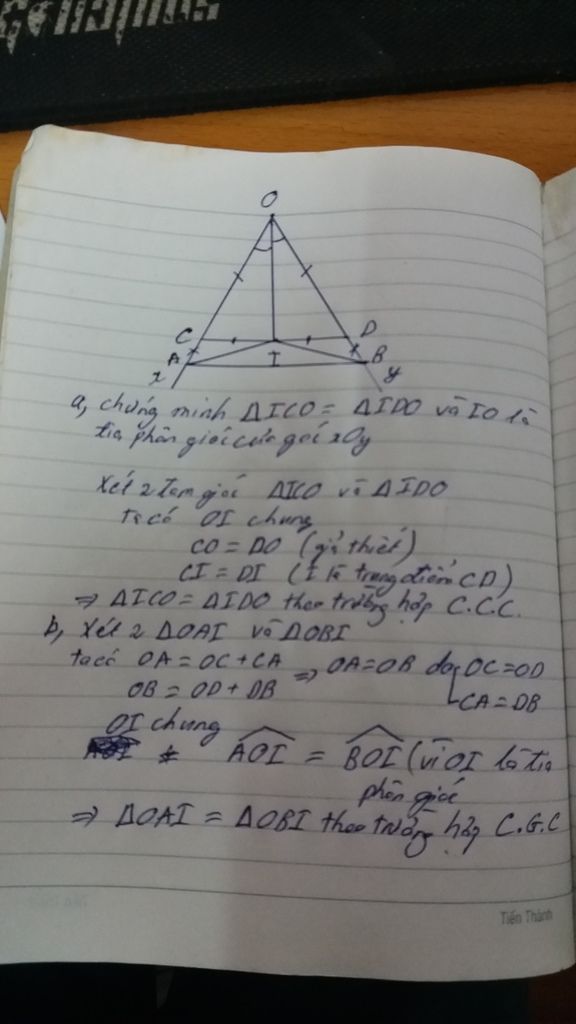 O
C D
A I B
x y
a, chứng minh ΔICO = ΔIDO và IO là
tia phân giác của góc xOy
Xét 2 tam giác ΔICO và ΔIDO
Ta có OI chung
CO = DO (giả thiết)
CI = DI (I là trung điểm CD)
⇒ ΔICO = ΔIDO theo trường hợp C.C.C.
b, Xét 2 ΔOAI và ΔOBI
ta có OA = OC + CA ⇒ OA = OB do OC = OD
OB = OD + DB CA = DB
OI chung
AOI = BOI (vì OI là tia
phân giác
⇒ ΔOAI = ΔOBI theo trường hợp C.G.C
Tiến Thành